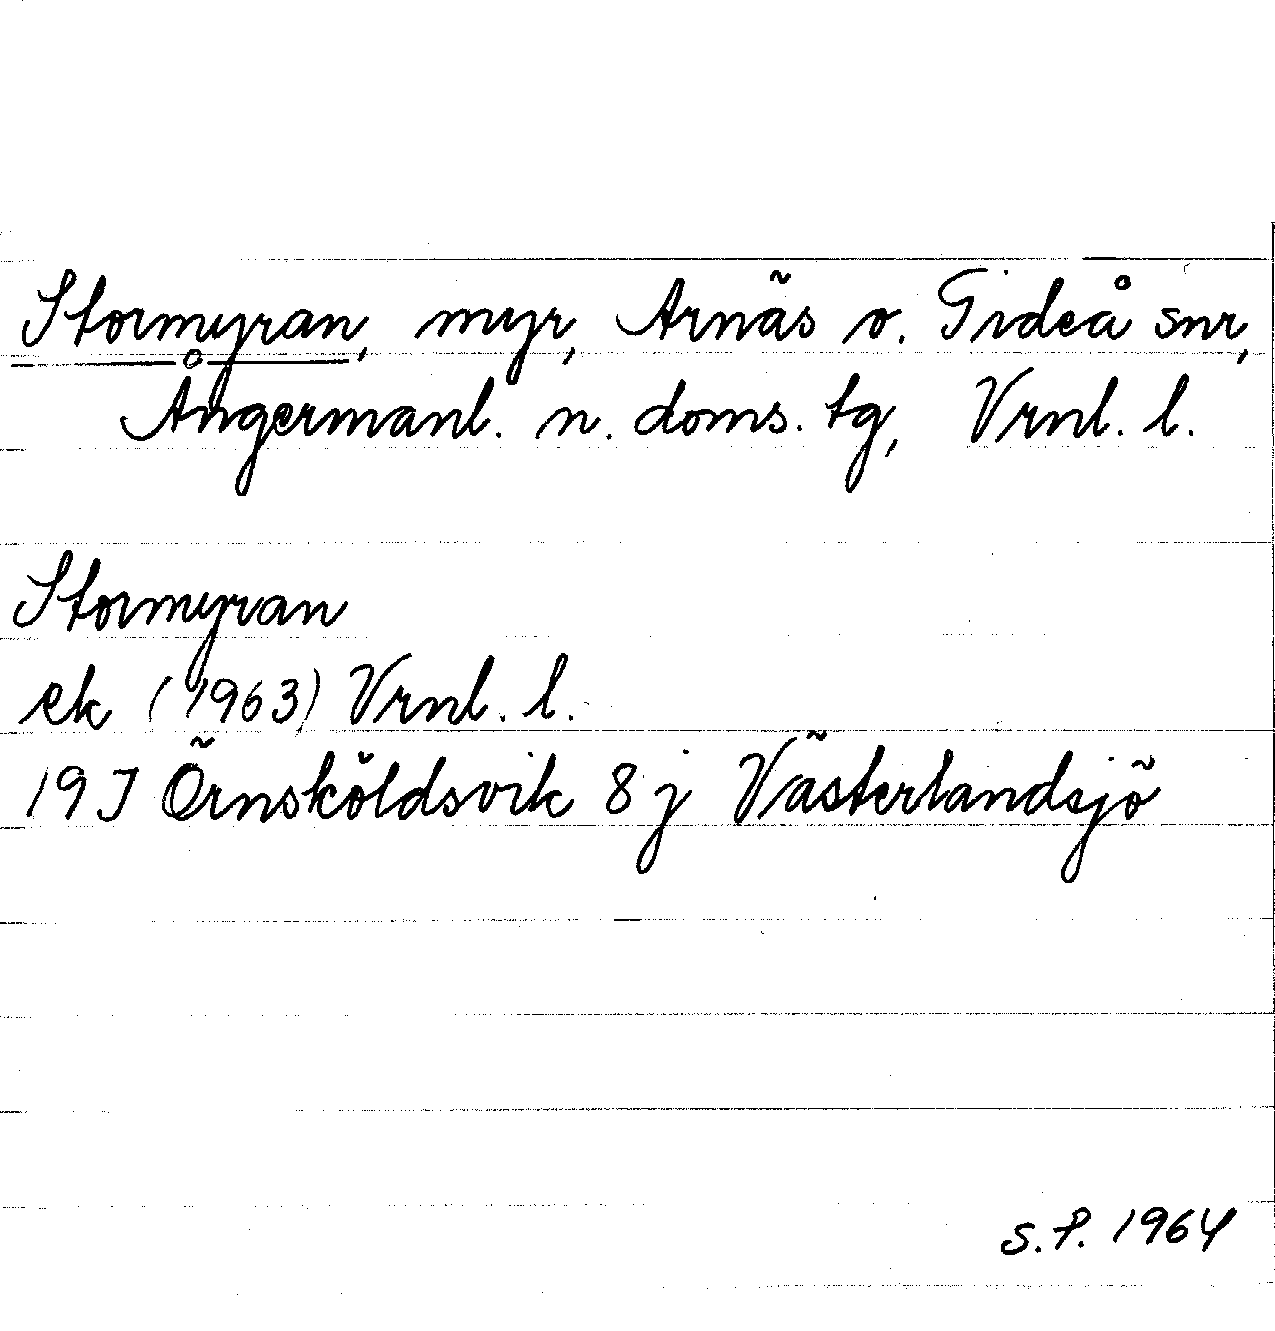 Stormyran, myr, Arnäs o. Gideå snr,
Ångermanl. n. doms. tg, Vrnl. l.
Stormyran
ek (1963) Vrnl. l.
19 J Örnsköldsvik 8 j Västerlandsjö
S.P. 1964